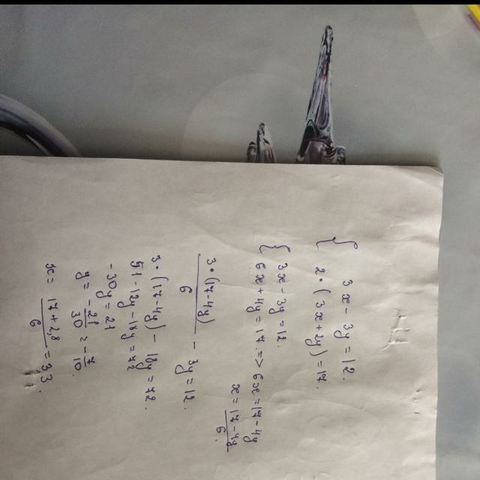 { 3x - 3y = 12.
2 · (3x + 2y) = 17.
{ 3x - 3y = 12.
6x + 4y = 17. => 6x = 17 - 4y
x = \frac{17 - 4y}{6}.
\frac{3 · (17 - 4y)}{6} - 3y = 12.
3 · (17 - 4y) - 18y = 72.
51 - 12y - 18y = 72
-30y = 21
y = -\frac{21}{30} = -\frac{7}{10}.
x = \frac{17 + 2,8}{6} = 3,3.